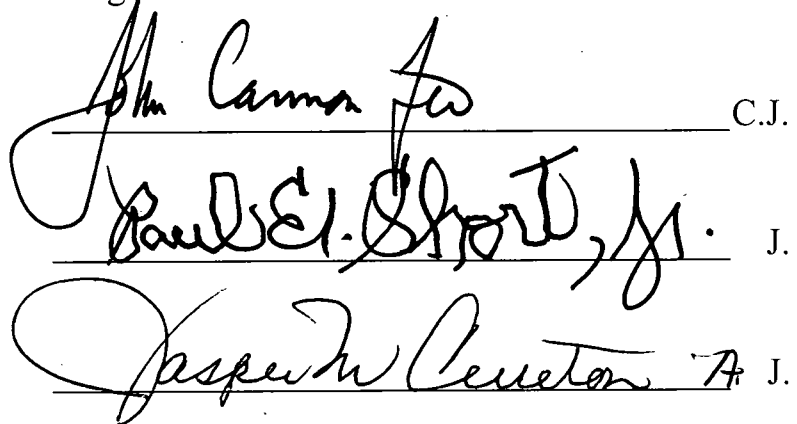 John Cannon Few C.J.
Paul E. Short, Jr. J.
Jasper M Cureton A. J.